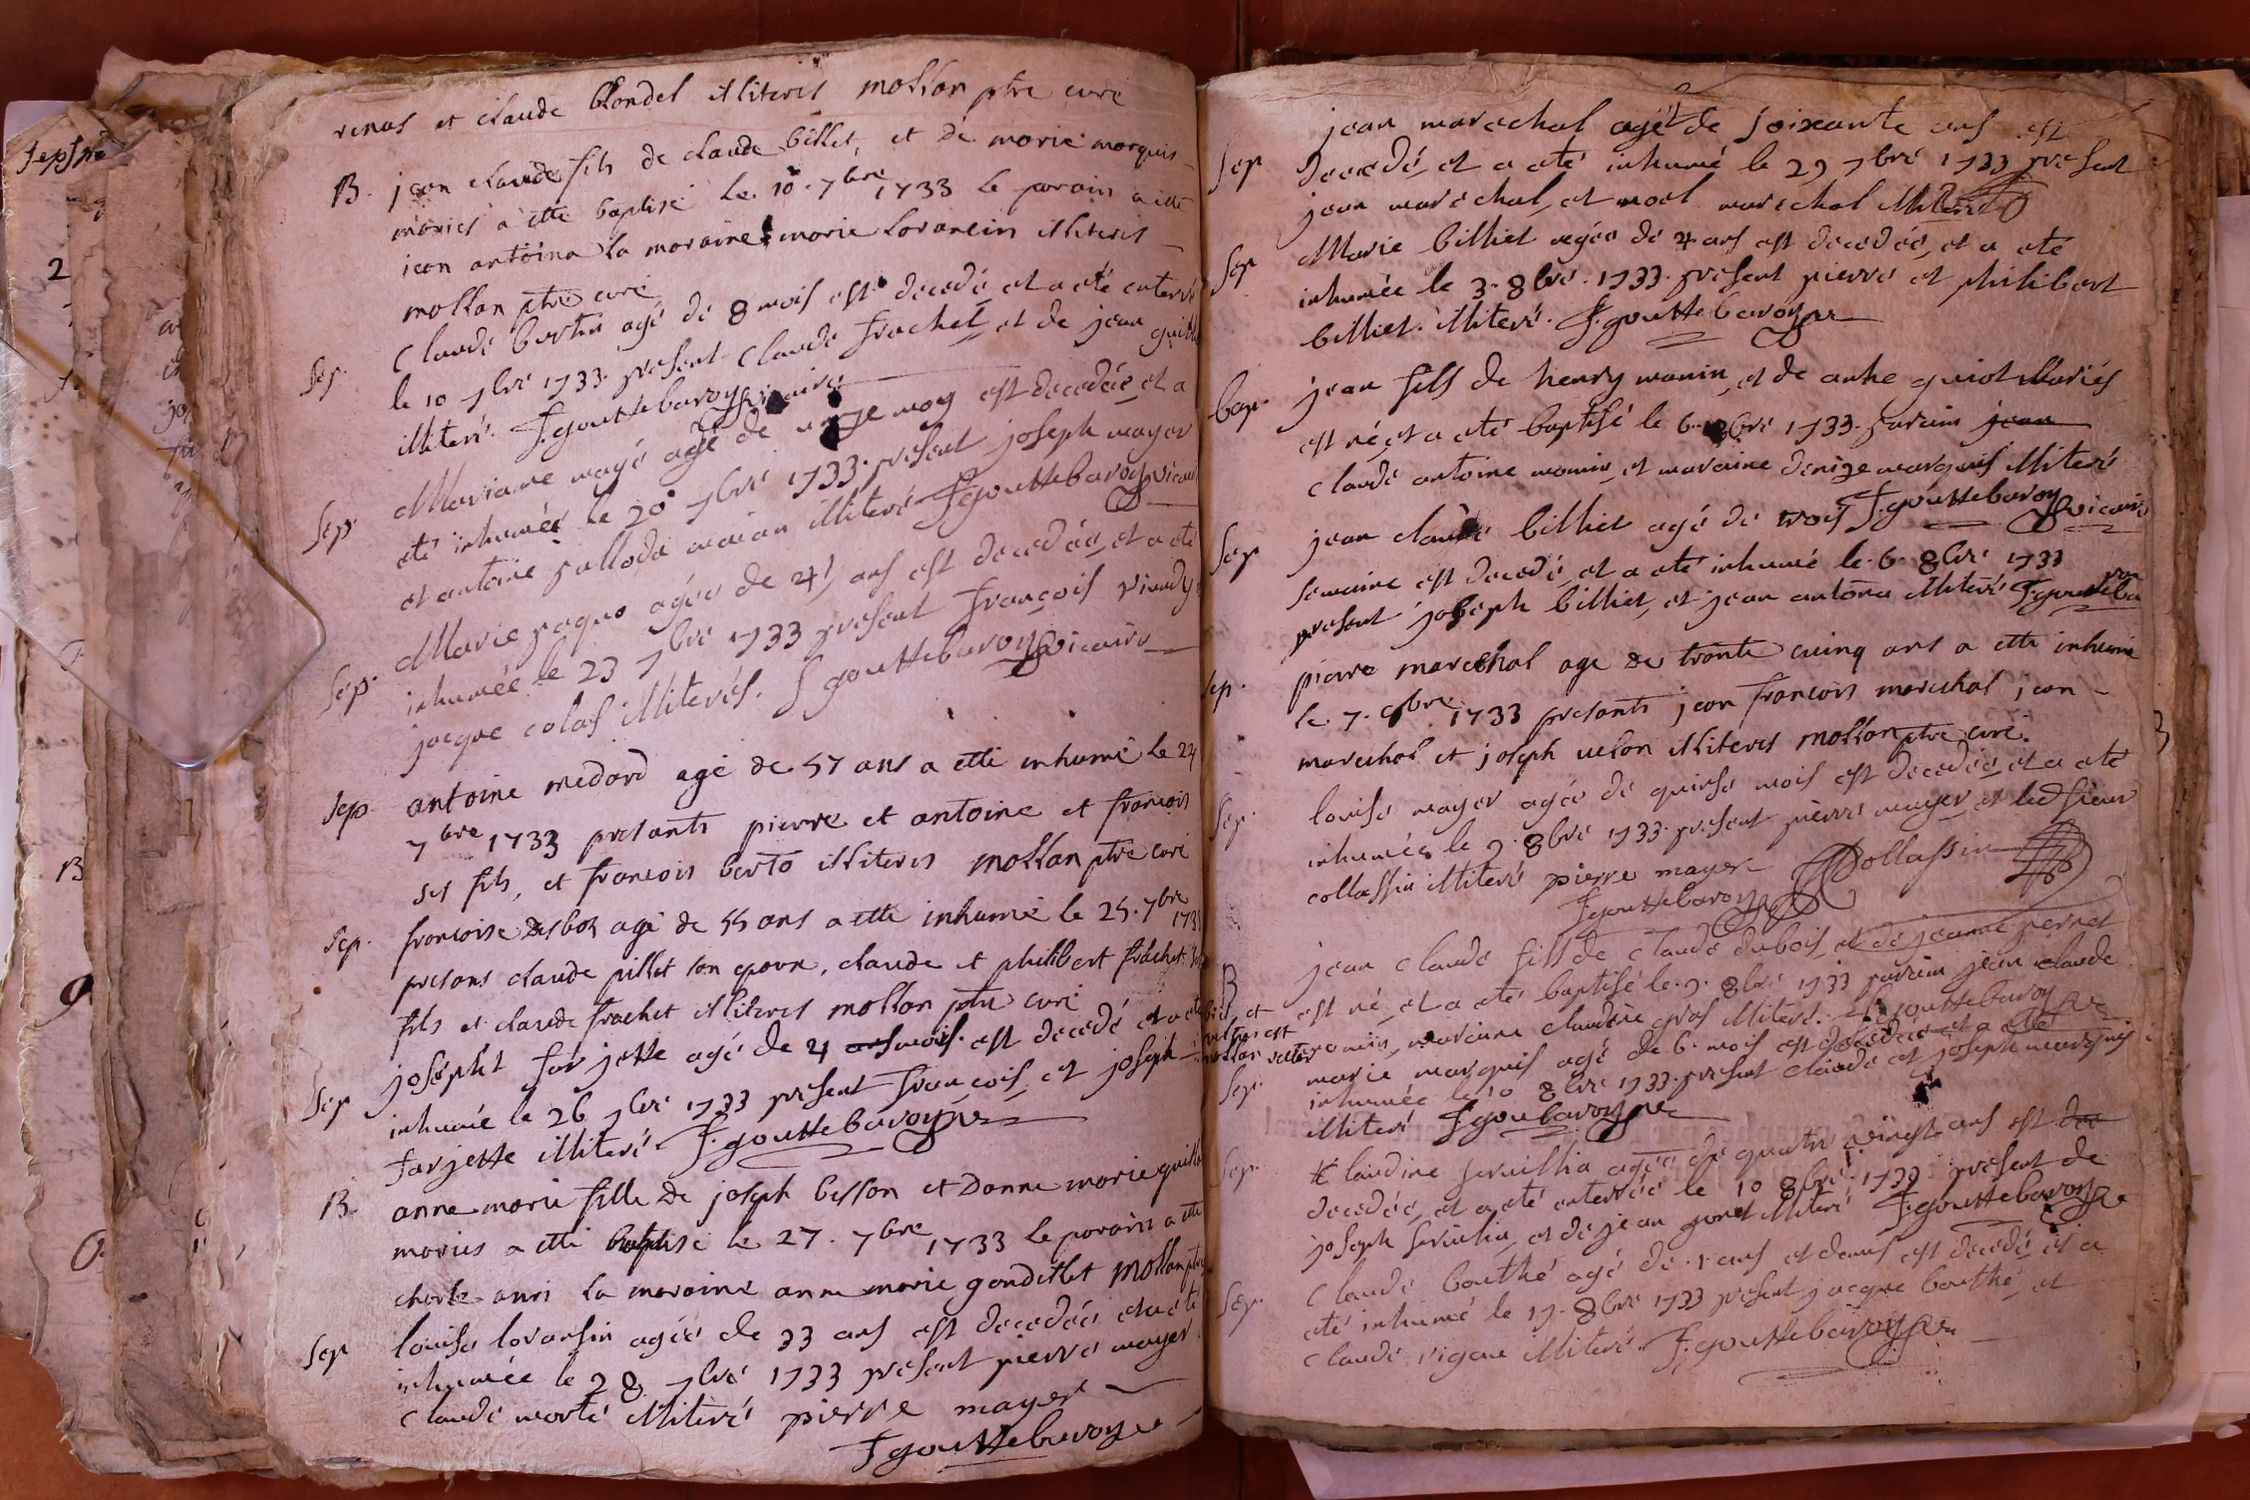 renas et claude blondel illiterés mollan ptre curé
B. jean claude fils de claude billet, et de marie marquis
mariés a etté baptisé le 10 . 7bre 1733 le parain a etté
jean antoina la maraine marie lorancin illiterés
mollan ptre curé
Sep. Claude bertin agé de 8 mois est decedé et a eté enterré
le 10 7bre 1733. present Claude frachet, et de jean
illiteré. F. gouttebaroy vicaire
Sep. Mariane mayé agé de onze moy est decedée et a
eté inhumée le 20 7bre 1733. present joseph mayer
et antoine illiteré F. gouttebaroy vicaire
Sep. Marie paquo agée de 24 ans est decedée, et a eté
inhumée le 23 7bre 1733 present francois
jacque colas illiterés. F gouttebaroy vicaire
Sep antoine medard agé de 57 ans a etté inhumé le 24
7bre 1733 presants pierre et antoine et francois
ses fils, et francois berto illiteres mollan ptre curé
Sep. francoise desbos agé de 55 ans a etté inhumé le 25. 7bre
1733
presans claude pillet son epoux, claude et philibert frachet
fils et claude frachet illiteres mollan ptre curé
Sep josepht farjette agé de 4 ans mois. est decedé et a eté
inhumé le 26 7bre 1733 present francois, et joseph
farjette illiteré F. gouttebaroy
B. anne marie fille de joseph besson et danne marie
mariés a etté baptisé le 27 . 7bre 1733 le parain a etté
charle anri la maraine anne marie gondillet mollan ptre
Sep louise loransin agée de 33 ans est decedée et a eté
inhumée le 28 7bre 1733 present pierre mayer
Claude morté illiteré pierre mayer
F gouttebaroy
jean marechal agé de soixante ans est
Sep decedé, et a eté inhumé le 29 7bre 1733 present
jean marechal, et noel marechal illiteré
Sep Marie billiet agée de 4 ans est decedée, et a eté
inhumée le 3. 8bre. 1733. present pierre et philibert
billiet. illiteré. F. gouttebaroy
bap. jean fils de henry manin, et de anne guiot Mariés
est né, et a eté baptisé le 6. 8bre 1733. parain jean
Claude antoine manin, et maraine denize marquis illiteré
F. gouttebaroy vicaire
Sep jean claude billiet agé de trois
semaine est decedé, et a eté inhumé le. 6. 8bre 1733
present joseph billiet, et jean antona illiteré F. goutteba
roy
Sep. pierre marechal agé de trante cuinq ans a etté inhumé
le 7. 8bre 1733 presants jean francois marechal jean
marechal et joseph velon illiteres mollan ptre curé.
Sep. louise mayer agée de quinse mois est decedée, et a eté
inhumée le 9. 8bre 1733. present pierre mayer et led sieur
collassin illiteré pierre mayer Collassin
F gouttebaroy
B jean claude fils de Claude dubois, et de jeanne pernet
est né, et a eté baptisé le. 9. 8bre 1733 parain jean claude
maraine claudine gros illiteré. F. gouttebaroy
Sep. marie marquis agé de 6. mois est decedée et a eté
inhumée le 10 8bre 1733. present Claude et joseph marquis
illiteré F. goutebaroy
Sep. Claudine agée de quatre vingt ans est dec
decedée, et a eté enterrée le 10 8bre. 1733 present de
joseph et de jean illiteré F. gouttebaroy
Sep. Claude bouthé agé de . 1 ans et demis est decedé, et a
eté inhumé le 19. 8bre 1733 present jacque bouthé, et
Claude vigoue illiteré. F. gouttebaroy